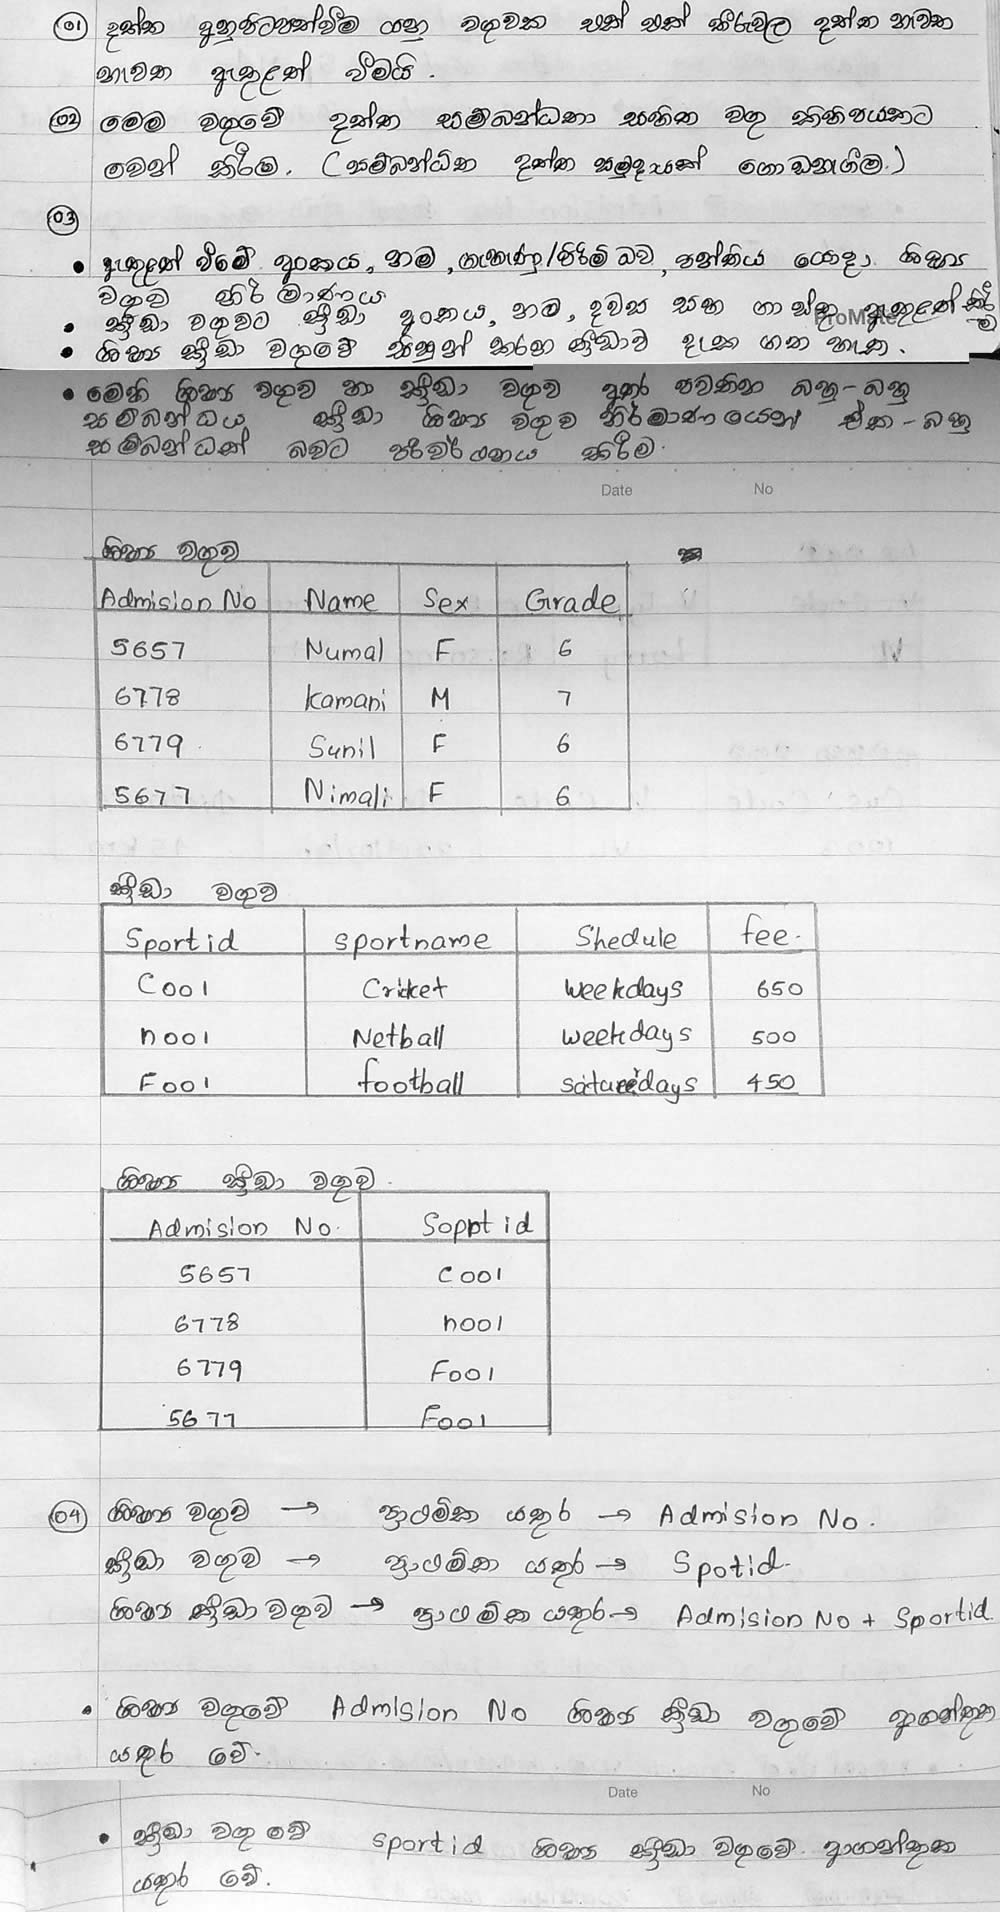 01 දත්ත අනුපිටපත්වීම යනු වගුවක එක් එක් තීරුවල දත්ත නැවත
නැවත ඇතුළත් වීමයි.
02 මෙම වගුවේ දත්ත සම්බන්ධතා සහිත වගු කිහිපයකට
වෙන් කිරීම. (සම්බන්ධිත දත්ත සමුදායක් ගොඩනැගීම.)
03
• ඇතුළත් වීමේ අංකය, නම, ගැහැණු/පිරිමි බව, පන්තිය යොදා ශිෂ්‍ය
වගුව නිර්මාණය
• ක්‍රීඩා වගුවට ක්‍රීඩා අංකය, නම, දවස සහ ගාස්තු ඇතුළත් කිරීම
ProMate
• ශිෂ්‍ය ක්‍රීඩා වගුවේ සිසුන් කරන ක්‍රීඩාව දැක ගත හැක.
• මෙහි ශිෂ්‍ය වගුව හා ක්‍රීඩා වගුව අතර පවතින බහු-බහු
සම්බන්ධය ක්‍රීඩා ශිෂ්‍ය වගුව නිර්මාණයෙන් ඒක-බහු
සම්බන්ධයක් බවට පරිවර්තනය කිරීම.
Date No
ශිෂ්‍ය වගුව
Admision No Name Sex Grade
5657 Numal F 6
6778 Kamani M 7
6779 Sunil F 6
5677 Nimali F 6
ක්‍රීඩා වගුව
Sportid sportname Shedule fee.
C001 Cricket weekdays 650
n001 Netball weekdays 500
F001 football saturedays 450
ශිෂ්‍ය ක්‍රීඩා වගුව.
Admision No. Sopptid
5657 C001
6778 n001
6779 F001
5677 F001
04 ශිෂ්‍ය වගුව → ප්‍රාථමික යතුර → Admision No.
ක්‍රීඩා වගුව → ප්‍රාථමික යතුර → Spotid.
ශිෂ්‍ය ක්‍රීඩා වගුව → ප්‍රාථමික යතුර → Admision No + Sportid
• ශිෂ්‍ය වගුවේ Admision No ශිෂ්‍ය ක්‍රීඩා වගුවේ ආගන්තුක
යතුර වේ.
Date No
• ක්‍රීඩා වගුවේ sportid ශිෂ්‍ය ක්‍රීඩා වගුවේ ආගන්තුක
යතුර වේ.